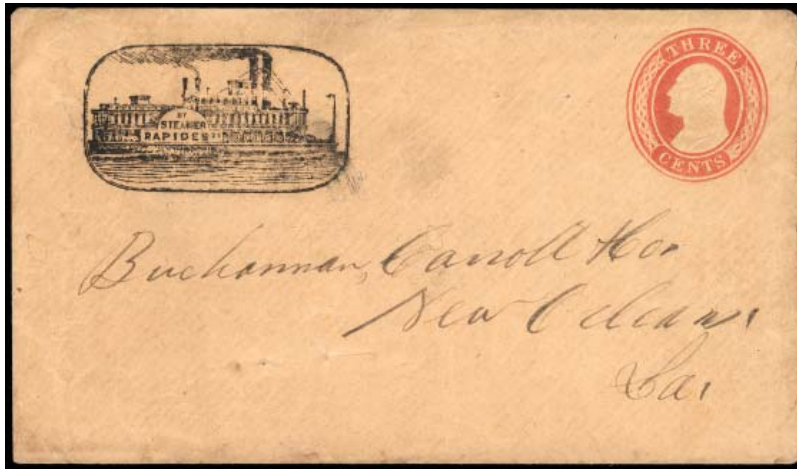 BY
STEAMER
RAPIDES
THREE
CENTS
Buchannan, Carroll & Co.
New Orleans.
La.